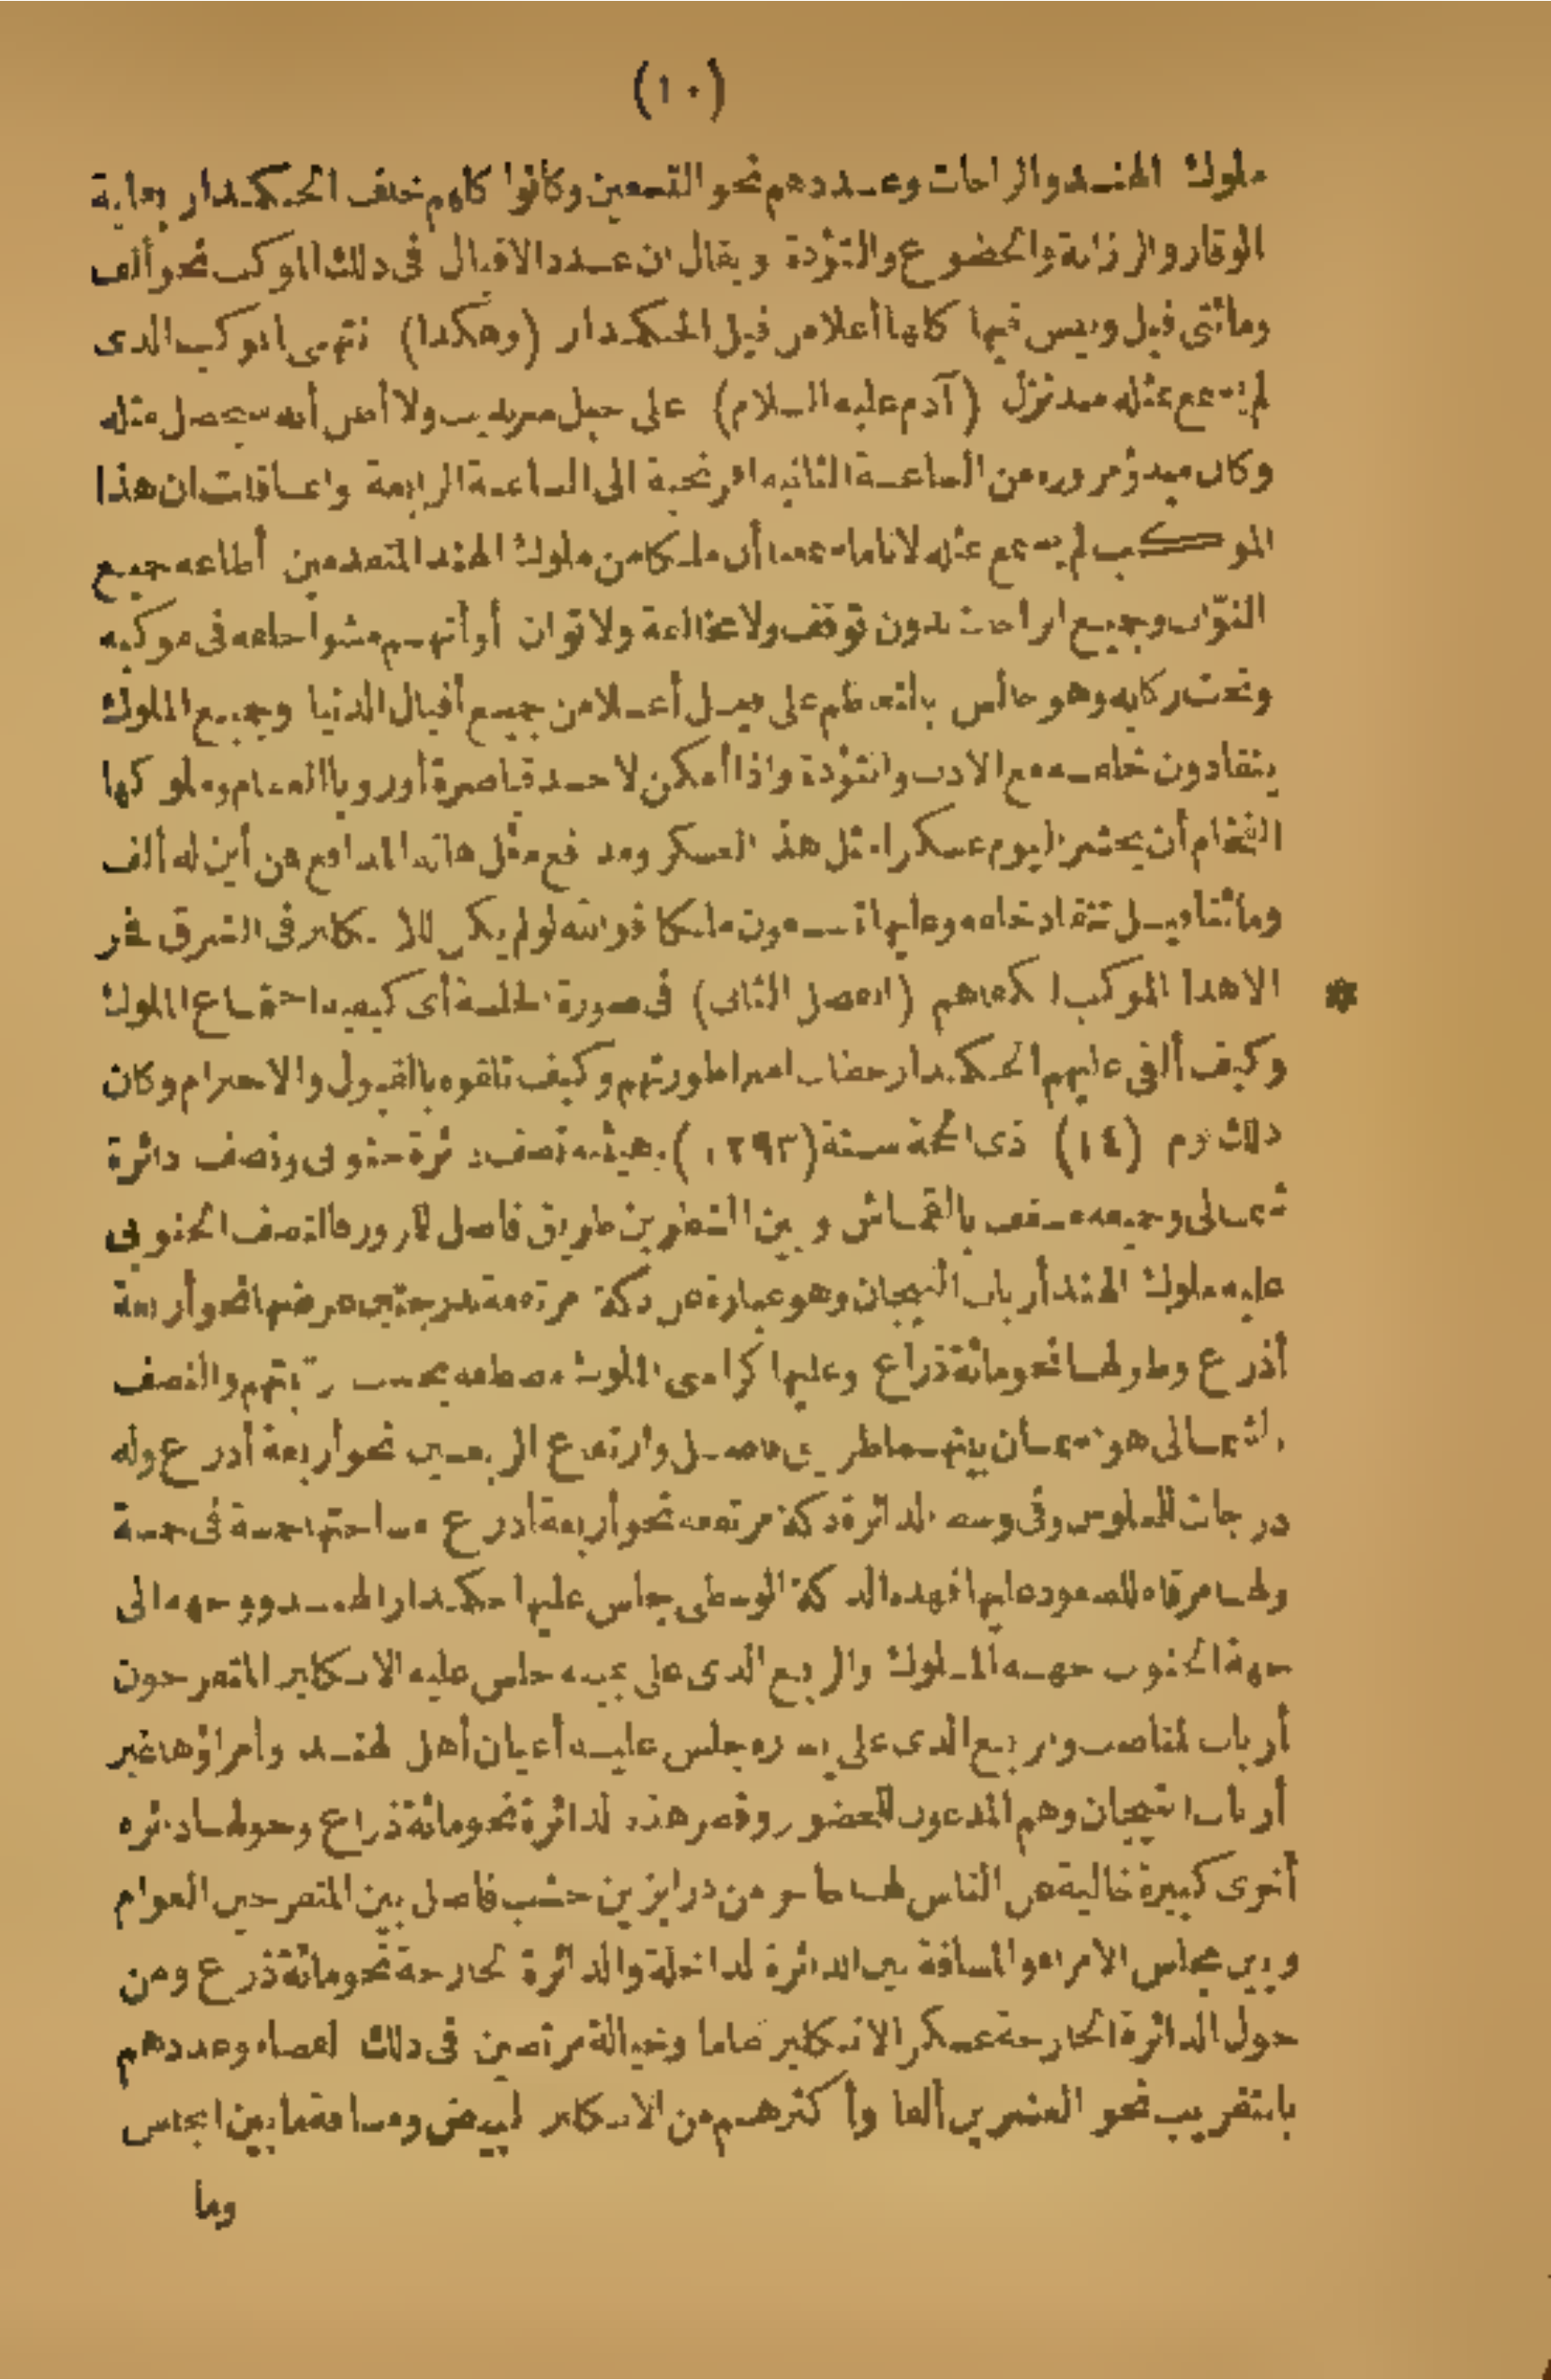 (١٠)
ملوك الهند والراجات وعددهم نحو التسعين وكانوا كلهم خلف الحكمدار بغاية
الوقار والرزانة والخضوع والتؤدة ويقال ان عدد الافيال فى ذلك الموكب نحو ألف
ومائتى فيل وليس فيها كلها أعلا من فيل الحكمدار (وهكذا) انتهى الموكب الذى
لم يسمع بمثله منذ نزل (آدم عليه السلام) على جبل سرنديب ولا أظن أنه سيحصل مثله
وكان مبدؤ مروره من الساعة الثانيه افرنجية الى الساعة الرابعة وانما قلت ان هذا
الموكب لم يسمع بمثله لاننا ما سمعنا أن ملكا من ملوك الهند المتقدمين أطاعه جميع
النوّاب وجميع الراجات بدون توقف ولا مخالفة ولا توان أو أنهم مشوا خلفه فى موكبه
وتحت ركابه وهو جالس بالتعظم على فيل أعلا من جميع أفيال الدنيا وجميع الملوك
ينقادون خلفه مع الادب والتؤدة واذا أمكن لاحد قياصرة أوروبا العظام وملوكها
الفخام أن يحشر اليوم عسكرا مثل هذا العسكر ومدافع مثل هاته المدافع من أين له ألف
ومائتا فيل تنقاد خلفه وعليها تسعون ملكا فوالله لو لم يكن للانكليز فى الشرق فخر
الا هذا الموكب لكفاهم (الفصل الثانى) فى صورة الجلسة أى كيفية اجتماع الملوك
وكيف ألقى عليهم الحكمدار خطاب امبراطورتهم وكيف تلقوه بالقبول والاحترام وكان
ذلك يوم (١٤) ذى الحجة سنة (١٢٩٣) بهيئة نصف دائرة جنوبى ونصف دائرة
شمالى وجميعه مسقف بالقماش وبين الشطرين طريق فاصل للمرور فالنصف الجنوبى
عليه ملوك الهند أرباب التيجان وهو عبارة عن دكة مرتفعة بدرجتين عرضها نحو أربعة
أذرع وطولها نحو مائة ذراع وعليها كراسى الملوك مصطفه بحسب رتبتهم والنصف
الشمالى هو قسمان بينهما طريق فاصل وارتفاع الربعين نحو أربعة أذرع وله
درجات للجلوس وفى وسط الدائرة دكة مرتفعه نحو أربعة أذرع مساحتها خمسة فى خمسة
ولها مرقاه للصعود عليها فهذه الدكة الوسطى جلس عليها حكمدار الهند ووجهه الى
جهة الجنوب جهة الملوك والربع الذى على يمينه جلس عليه الانكليز المتفرجون
أرباب المناصب والربع الذى على يساره جلس عليه أعيان أهل الهند وأمراؤها غير
أرباب التيجان وهم المدعون للحضور وقطر هذه الدائرة نحو مائة ذراع وحولها دائره
أخرى كبيرة خالية من الناس لها حاجز من درابزين خشب فاصل بين المتفرجين العوام
وبين مجلس الامراء والمسافة بين الدائرة الداخلة والدائرة الخارجة نحو مائة ذراع ومن
حول الدائرة الخارجة عسكر الانكليز نظاما وخيالة مرتصين فى ذلك الفضاء وعددهم
بالتقريب نحو العشرين ألفا وأكثرهم من الانكليز البيض ومسافة ما بين المجلس
وما